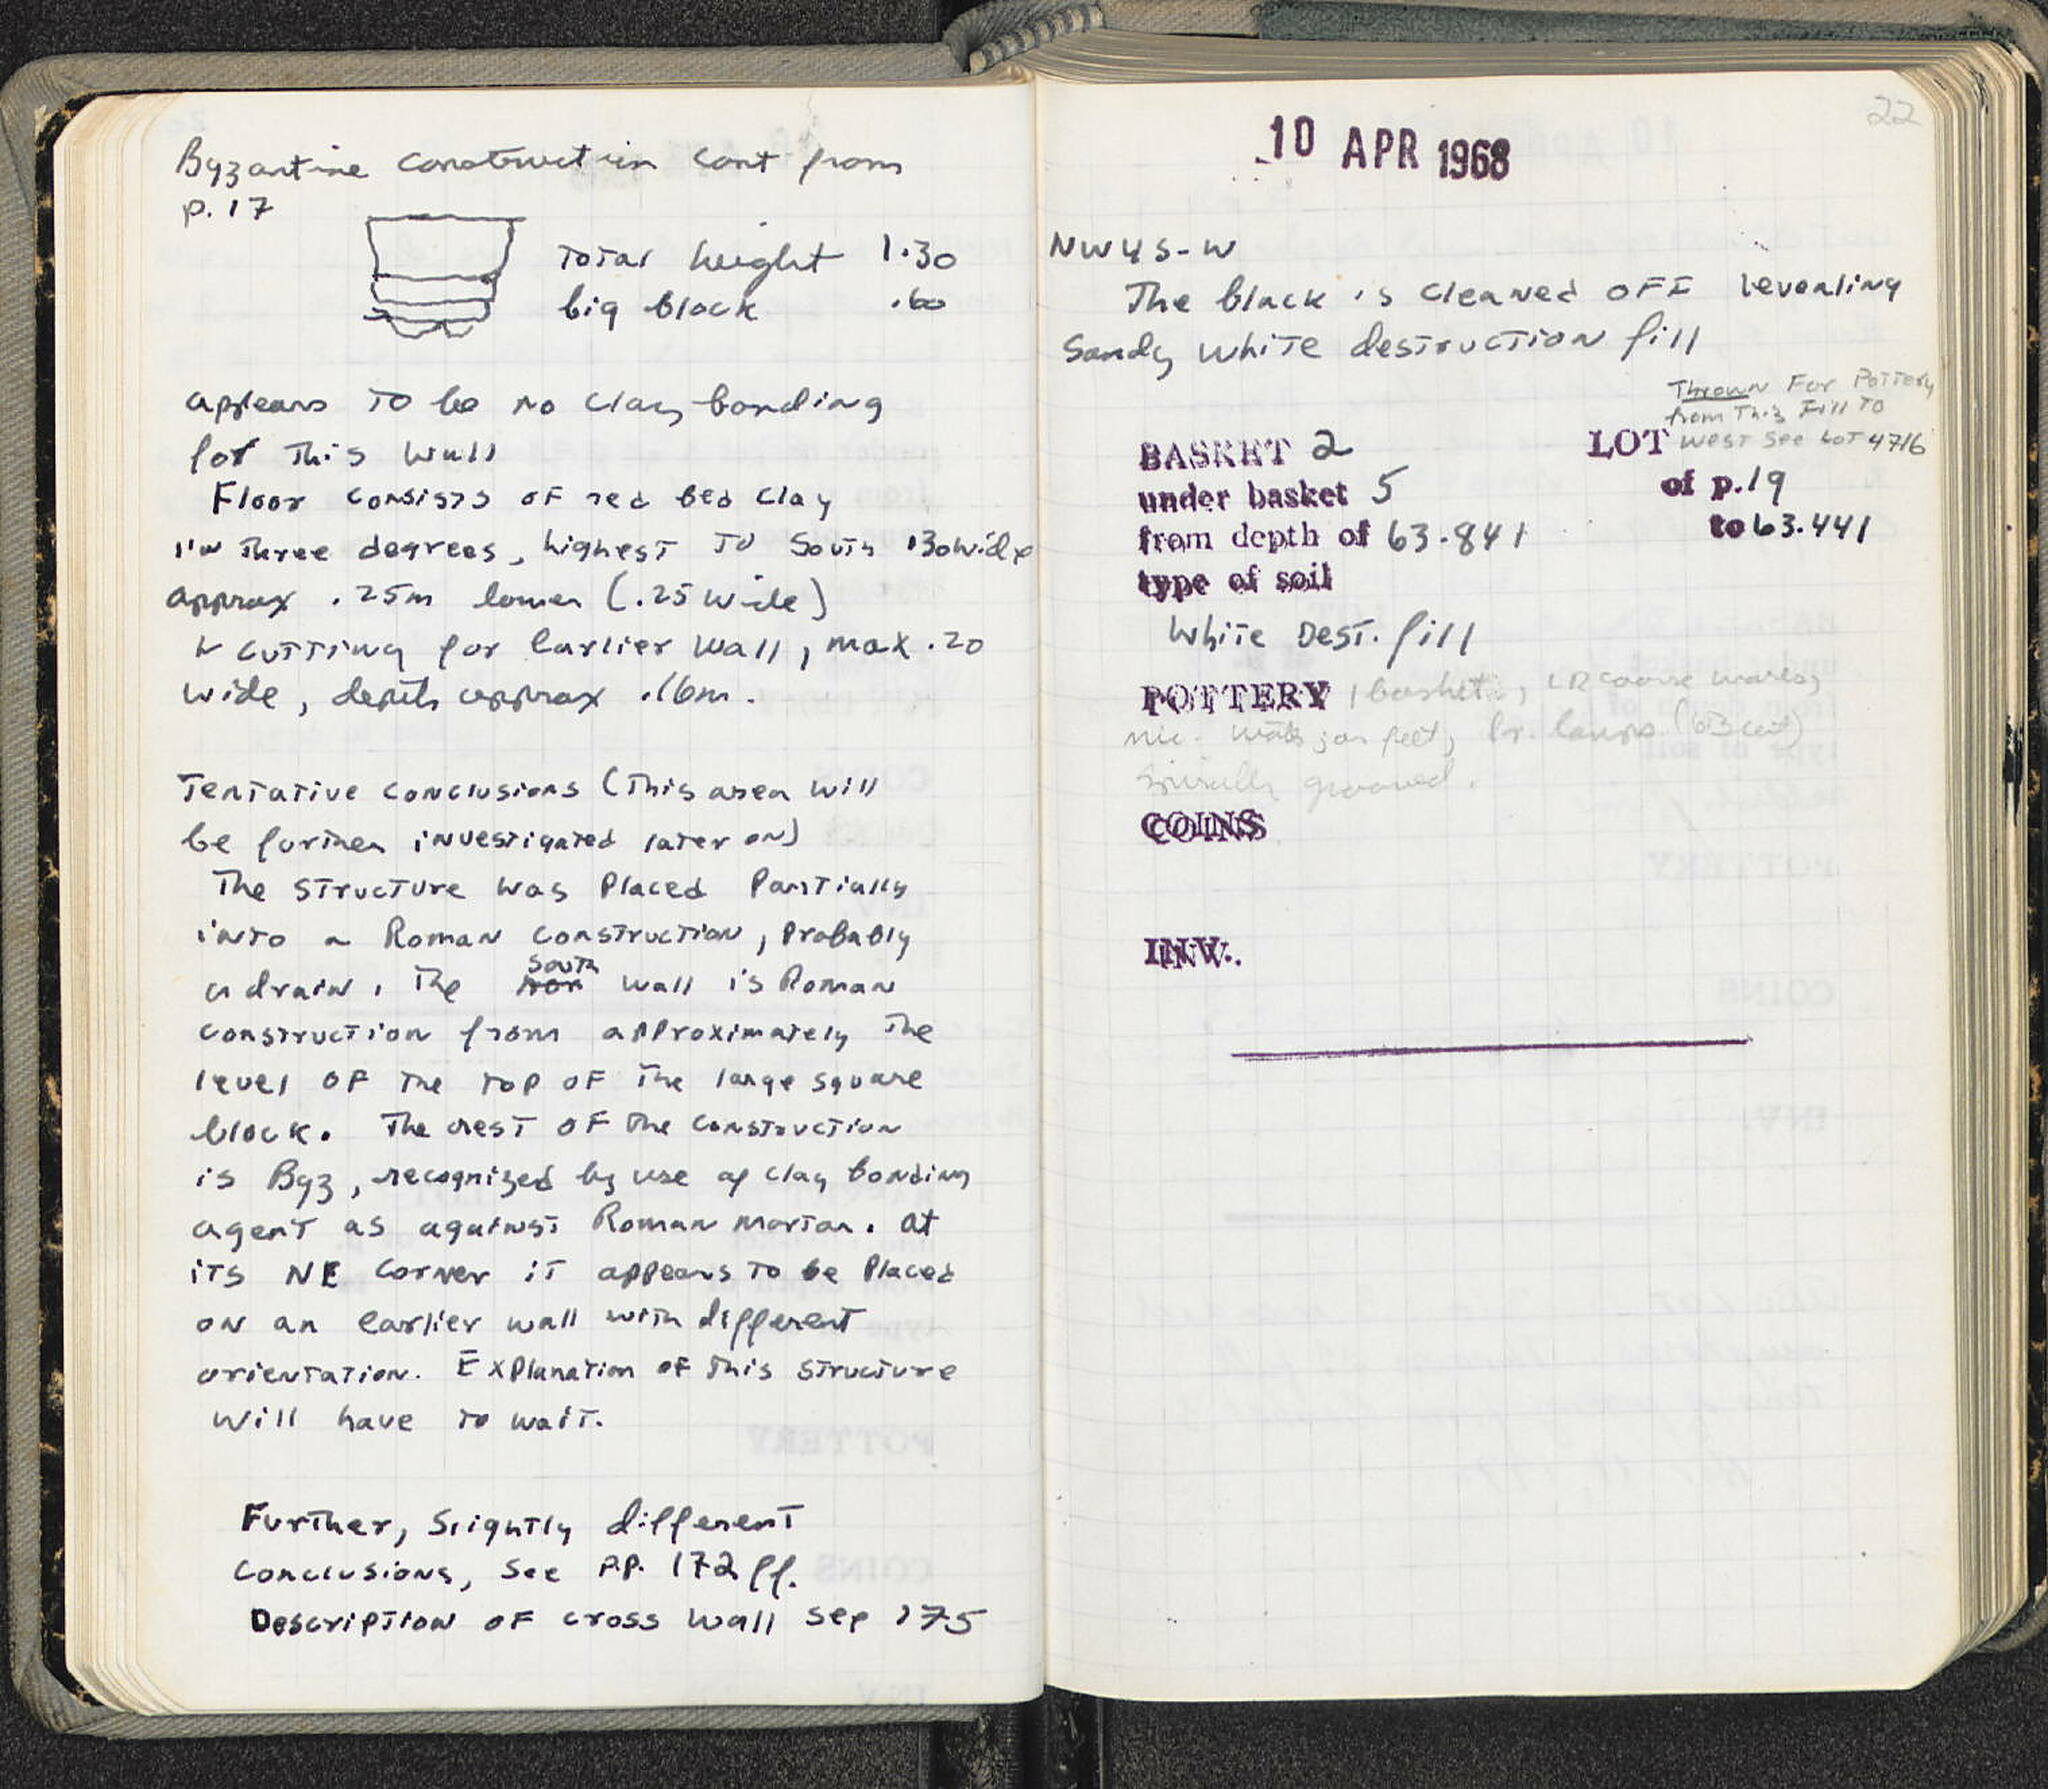 Byzantine Construction Cont from
p. 17
Total height 1.30
big block .60
appears to be no clay bonding
for this wall
Floor consists of red bed clay
in three degrees, highest to South .30 wide
approx .25m lower (.25 wide)
cutting for earlier wall, max .20
wide, depth approx .16m.
Tentative conclusions (this area will
be further investigated later on)
The structure was placed partially
into a Roman construction, probably
a drain. The south wall is Roman
construction from approximately the
level of the top of the large square
block. The rest of the construction
is Byz, recognized by use of clay bonding
agent as against Roman mortar. At
its NE corner it appears to be placed
on an earlier wall with different
orientation. Explanation of this structure
will have to wait.
Further, slightly different
conclusions, see pp. 172 ff.
Description of cross wall see 175
22
10 APR 1968
NW45-W
The black is cleaned off revealing
Sandy white destruction fill
Thrown For Pottery
from this Fill to
west see Lot 4716
BASKET 2 LOT
under basket 5 of p. 19
from depth of 63.841 to 63.441
type of soil
White Dest. fill
POTTERY 1 basket, LR coarse wares,
mic. water jar feet, fr. lamps
spirally grooved.
COINS
INV.